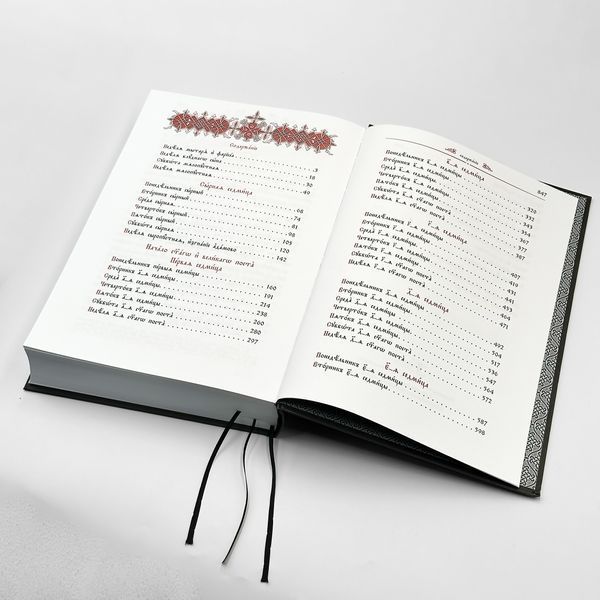 Содержанїе
Недѣлѧ мытарѧ и фарїсе́ѧ . . . 3
Недѣлѧ блꙋднагѡ сы́на . . . 18
Сꙋббѡ́та мѧсопꙋ́стнаѧ . . . 30
Недѣлѧ мѧсопꙋ́стнаѧ . . . 49
Сы́рнаѧ седми́ца
Понедѣ́льникъ сы́рный . . . 68
Вто́рникъ сы́рный . . . 74
Среда̀ сы́рнаѧ . . . 81
Четверто́къ сы́рный . . . 98
Пѧто́къ сы́рный . . . 103
Сꙋббѡ́та сы́рнаѧ . . . 120
Недѣ́лѧ сыропꙋ́стнаѧ, и҆згна́нїе а҆да́мово . . . 142
Нача́ло ст҃а́гѡ и҆ вели́кагѡ поста̀
Пе́рваѧ седми́ца
Понедѣ́льникъ пе́рвыѧ седми́цы . . . 160
Вто́рникъ а҃-ѧ седми́цы . . . 191
Среда̀ а҃-ѧ седми́цы . . . 214
Четверто́къ а҃-ѧ седми́цы . . . 238
Пѧто́къ а҃-ѧ седми́цы . . . 260
Сꙋббѡ́та а҃-ѧ ст҃а́гѡ поста̀ . . . 280
Недѣ́лѧ а҃-ѧ ст҃а́гѡ поста̀ . . . 297
847
седми́ца
Понедѣ́льникъ седми́цы . . . 320
Вто́рникъ седми́цы . . . 332
Среда̀ седми́цы . . . 347
Четверто́къ седми́цы . . . 357
Пѧто́къ седми́цы . . . 367
Сꙋббѡ́та ст҃а́гѡ поста̀ . . . 377
Недѣ́лѧ ст҃а́гѡ поста̀ . . . 387
седми́ца
Понедѣ́льникъ седми́цы . . . 407
Вто́рникъ седми́цы . . . 419
Среда̀ седми́цы . . . 431
Четверто́къ седми́цы . . . 441
Пѧто́къ седми́цы . . . 453
Сꙋббѡ́та ст҃а́гѡ поста̀ . . . 464
Недѣ́лѧ ст҃а́гѡ поста̀ . . . 471
седми́ца
Понедѣ́льникъ седми́цы . . . 492
Вто́рникъ седми́цы . . . 502
Среда̀ седми́цы . . . 517
Четверто́къ седми́цы . . . 536
Пѧто́къ седми́цы . . . 547
Сꙋббѡ́та ст҃а́гѡ поста̀ . . . 564
Недѣ́лѧ ст҃а́гѡ поста̀ . . . 572
седми́ца
Понедѣ́льникъ седми́цы . . . 587
Вто́рникъ седми́цы . . . 598